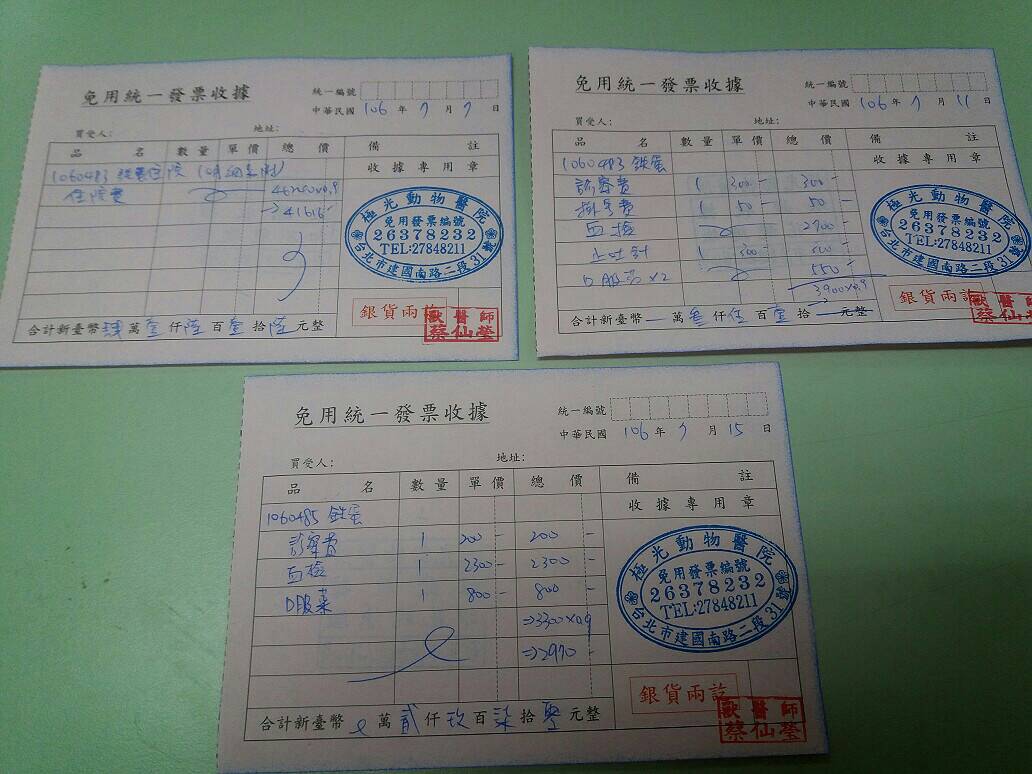 免用統一發票收據
統一編號
中華民國 106 年 7 月 7 日
買受人: 地址:
品 名 數 量 單 價 總 價 備 註
收 據 專 用 章
1060483 鐵蛋住院
住院費 ×0.9
→41616-
極光動物醫院
免用發票編號
26378232
TEL:27848211
台北市建國南路二段31號
銀貨兩訖
獸醫師
蔡仙瑩
合計新臺幣 肆 萬 壹 仟 陸 百 壹 拾 陸 元整
免用統一發票收據
統一編號
中華民國 106 年 7 月 11 日
買受人: 地址:
品 名 數 量 單 價 總 價 備 註
收 據 專 用 章
1060483 鐵蛋
診察費 1 300- 300-
掛号費 1 50- 50-
血檢 2700-
止吐針 1 500-
口服药×2 550-
3900×0.9
極光動物醫院
免用發票編號
26378232
TEL:27848211
台北市建國南路二段31號
銀貨兩訖
獸醫師
蔡仙瑩
合計新臺幣 — 萬 叁 仟 伍 百 壹 拾 — 元整
免用統一發票收據
統一編號
中華民國 106 年 7 月 15 日
買受人: 地址:
品 名 數 量 單 價 總 價 備 註
收 據 專 用 章
1060485 鐵蛋
診察費 1 200- 200-
血檢 1 2300- 2300-
口服藥 1 800- 800-
⇒3300×0.9
⇒2970-
極光動物醫院
免用發票編號
26378232
TEL:27848211
台北市建國南路二段31號
銀貨兩訖
獸醫師
蔡仙瑩
合計新臺幣 萬 貳 仟 玖 百 柒 拾 零 元整